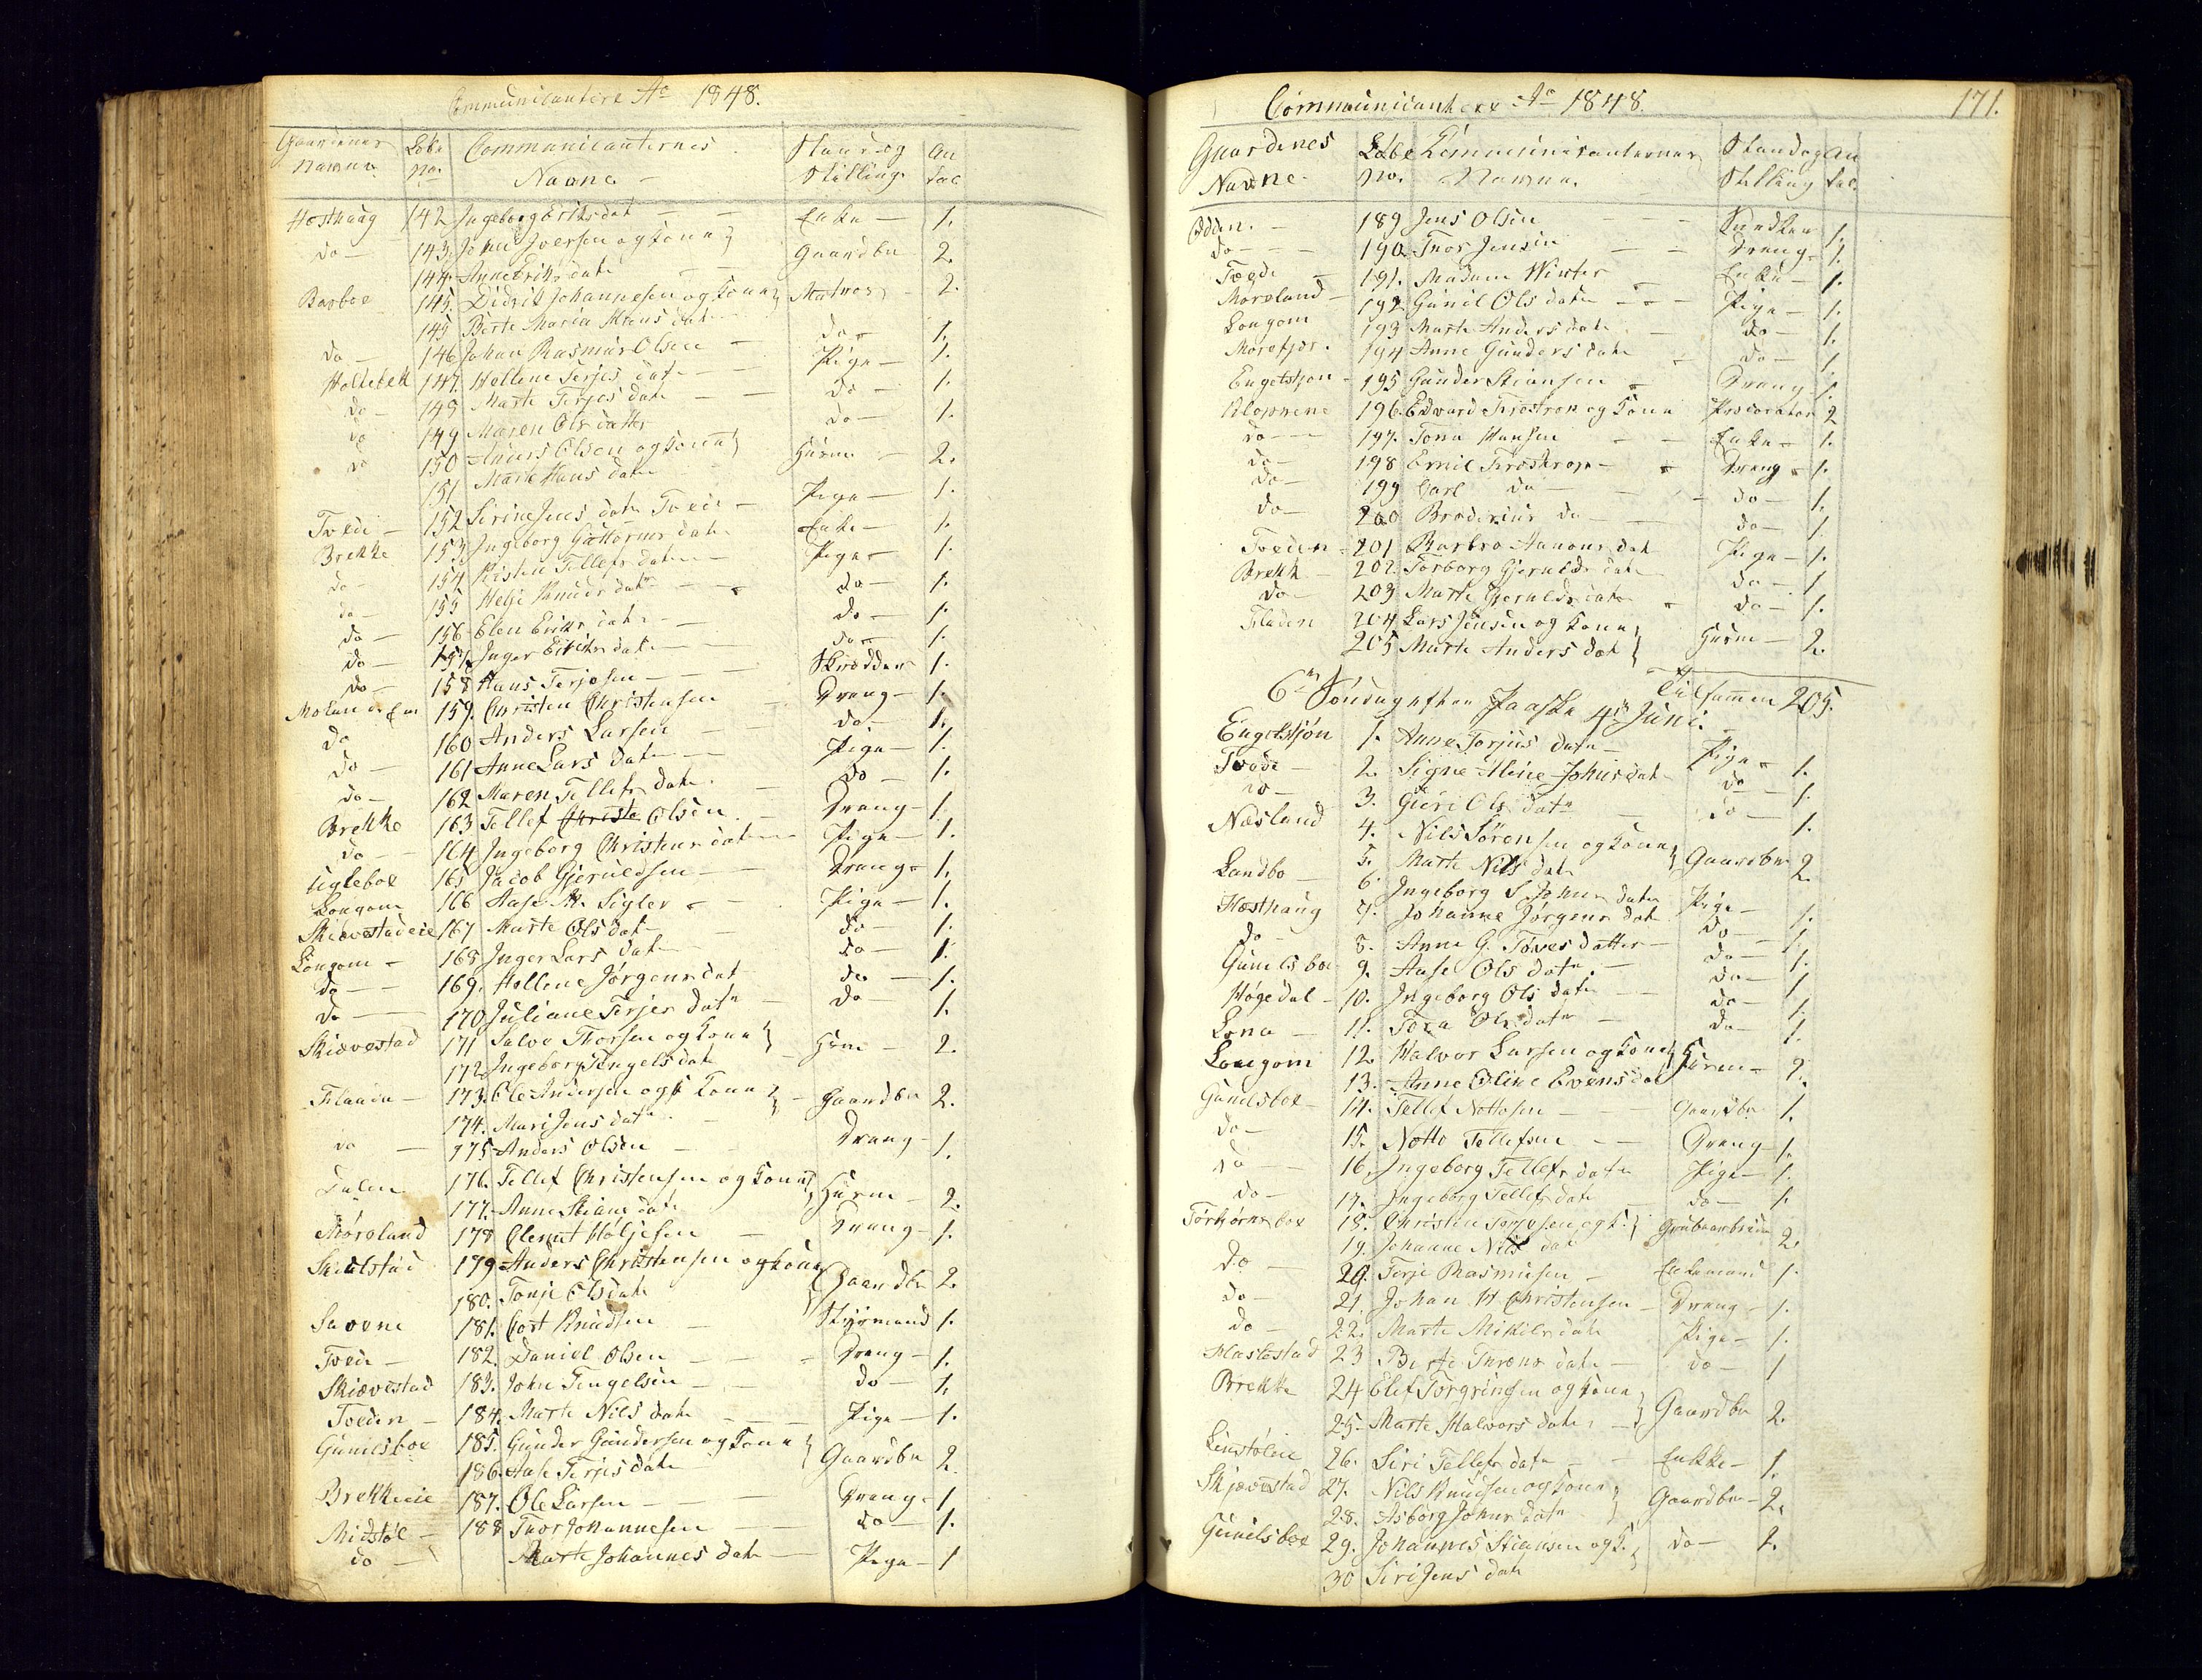 Communicantere Ao 1848.
Gaardenes Løbe Communicanternes Stand og An
Navne No. Navne Stilling tal
Høsthaug 142 Ingeborg Eriksdat Enke 1.
do 143. John Iversen og Kone Gaardbr 2.
144. Anne Eriks datr
Barboe 145. Didrik Johannesen og Kone Matros 2.
145 Berte Maria dat
do 146 Johan Rasmus Olsen do 1.
Holtebek 147. Hellene Terjes datr Pige 1.
do 148 Marte Terjes datr do 1.
do 149 Maren Ols datter do 1.
do 150 Anders Olsen og Kone Huusm 2.
151 Marte Hans datr
152 Sirine Jens datr Tvede Pige 1.
Tvede 153 Ingeborg Guttorms datr Enke 1.
Brekke 154 Kisten Tellefs datr Pige 1.
do 155 Helje Knuds datr do 1.
do 156 Elen Eriks datr do 1.
do 157 Inger Eriks datr do 1.
do 158 Hans Terjesen Skrædder 1.
159. Christen Christensen Dreng 1.
do 160 Anders Larsen do 1.
do 161 Anne Lars datr Pige 1.
do 162 Maren Tellefs datr do 1.
Brekke 163 Tellef Christe Olsen Dreng 1.
do 164 Ingeborg Christens datr Pige 1.
Sigleboe 165 Jacob Gjeruldsen Dreng 1.
Longom 166 Aase M. Sigler Pige 1.
Skiævestadeie 167 Marte Ols dat do 1.
Longom 168 Inger Lars datr do 1.
do 169. Hellene Jørgens dat do 1.
do 170 Juliane Terjes datr do 1.
Skiævestad 171 Salve Thorsen og Kone Huusm 2.
172. Ingeborg Tengels dat
Fladen 173. Ole Andersen og Kone Gaardbr 2.
174. Mari Jens datr
do 175 Anders Olsen Dreng 1.
176. Tellef Christensen og Kone Huusm 2.
177. Anne Stians datr
Møroland 178 Clemet Høljesen Dreng 1.
Skiulstad 179 Anders Christensen og Kone Gaardbr 2.
180. Tonje Ols datr
Savene 181. Cort Knudsen Styrmand 1.
Tvede 182. Daniel Olsen Dreng 1.
Skiævestad 183. John Tengelsen do 1.
Tveden 184. Marte Nils datr Pige 1.
Gunilsboe 185. Gunder Gundersen og Kone Gaardbr 2.
186. Aase Terjes datr
Brekkeeie 187. Ole Larsen Dreng 1
Midtstøl 188 Thor Johannesen do 1.
do Marte Johannes datr Pige 1
Communicantere Ao 1848. 171.
Gaardenes Løbe Communicanternes Stand og An
Navne No. Navne. Stilling tal.
Odden. 189 Jens Olsen 1.
do 190. Thor Jensen Dreng 1.
Tvede 191. Madam Winter Enke 1.
Møroland 192. Gunil Ols datr Pige 1.
Longom 193 Marte Anders datr do 1.
Mørefjær. 194 Anne Gunders datr do 1.
Engelskjøn 195 Gunder Stiansen Dreng 1.
Klopnene 196. Edvard Firestrop og Kone Procorator 2
do 197. Tona Hansen Enke 1.
do 198 Emil Firostrop Dreng 1.
do 199 Carl do do 1.
do 200 Broderius do do 1.
Tveden 201 Barbro Aanons dat Pige 1.
Brekk 202. Torborg Gjerulds datr do 1.
do 203 Marte Gjerulds datr do 1.
Fladen 204 Lars Jensen og Kone Huusm 2.
205 Marte Anders dat
Tilsammen 205.
6te Søndag efter Paaske 4de Juni.
Engelskjøn 1. Anne Torjus datr Pige 1.
Tvede 2. Signe Aline Johns dat do 1.
do 3. Guri Ols datr do 1.
Næsland 4. Nils Sørensen og Kone Gaardbr 2
5. Marte Nils datr
Landbo 6. Ingeborg S Johns datr Pige 1.
Høsthaug 7. Johanne Jørgens dat do 1.
do 8. Anne G. Toves datter do 1.
Gunilsboe 9. Aase Ols datr do 1
Høgedal 10. Ingeborg Ols datr do 1.
Lona 11. Tora Ols datr do 1.
Longom 12. Halvor Larsen og Kone Huusm 2.
13. Anne Oline Evens dat
Gunilsboe 14. Tellef Nottosen Gaardbr 1.
do 15. Notto Tellefsen Dreng 1.
do 16. Ingeborg Tellefs datr Pige 1.
do 17. Ingeborg Tellefs datr do 1.
Torbjørnsboe 18. Christen Terjesen og K. Grubearbeider 2.
19. Johanne Nils dat
do 20. Terje Rasmusen Enkemand 1.
do 21. Johan H Christensen Dreng 1.
do 22. Marte Mikels datr Pige 1.
Hastestad 23 Berte datr do 1
Brekke 24 Elef Torgrimsen og Kone Gaardbr 2.
25. Marte Halvors datr
26. Siri Tellefs datr Enkke 1.
Skjævestad 27. Nils Knudsen og Kone Gaardbr 2.
28. Asborg Johns datr
Gunilsboe 29. Johannes Stiansen og K. do 2.
30 Siri Jens datr